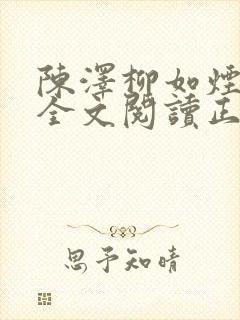 陳澤柳如煙
全文閱讀正
思予知晴